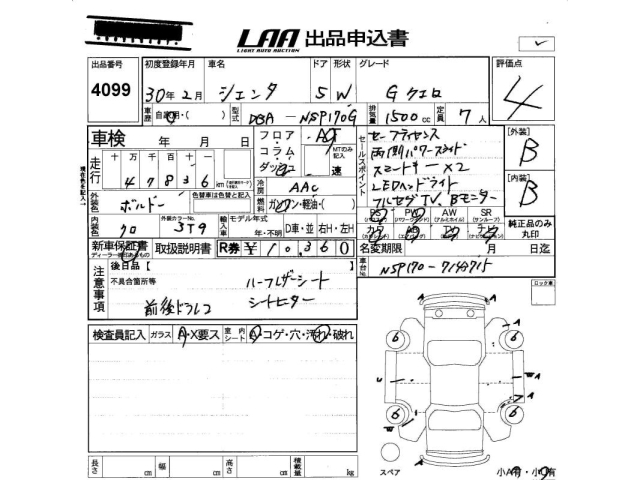 LAA 出品申込書
LIGHT AUTO AUCTION
出品番号 初度登録年月 車名 ドア 形状 グレード 評価点
4099 30年2月 シエンタ 5 W G クエロ 4
車歴 自家用・( ) 型式 DBA-NSP170G 排気量 1500cc 定員 7人
車検 年 月 日 フロア コラム ダッシュ AT MTのみ記入 速
セールスポイント
セーフティセンス
両側パワースライド
スマートキー×2
LEDヘッドライト
フルセグTV、Bモニター
[外装] B
[内装] B
走行 十万千百十 47836 km
冷房 AAC
外装色 ボルドー 色替車は色替と記入 燃料 ガソリン・軽油・( )
PS PW AW SR
(パワーウインドウ) (アルミホイル) (サンルーフ)
純正品のみ丸印
内装色 クロ 外装カラーNo. 3T9 輸入車 モデル年式 年・不明 D車・並 右H・左H
新車保証書 取扱説明書 R券 ¥10,360 名変期限 月 日迄
車台No. NSP170-
注意事項
後日品 [ ]
不具合箇所等
ハーフレザーシート
シートヒーター
前後ドラレコ
ロック車
検査員記入 ガラス A・X要ス 室内シート A・コゲ・穴・汚れ・破れ
長さ cm 幅 cm 高さ cm 積載量 kg
スペア
小A有・小 有